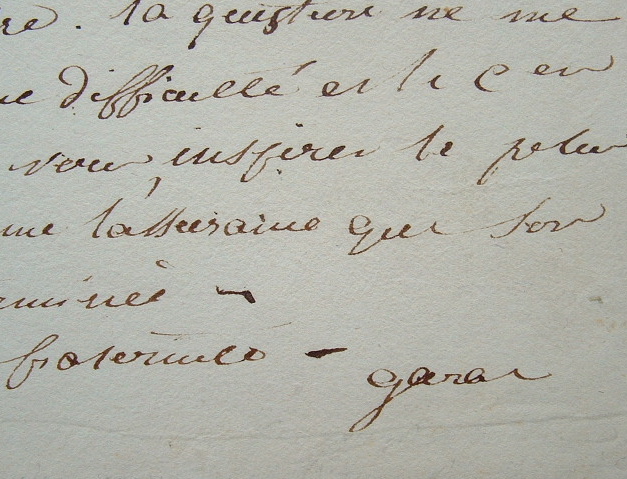 re. la question ne me
difficulté et si c en
vous inspirer le plus
me l'assurance que son
erminée -
fraternité - garat